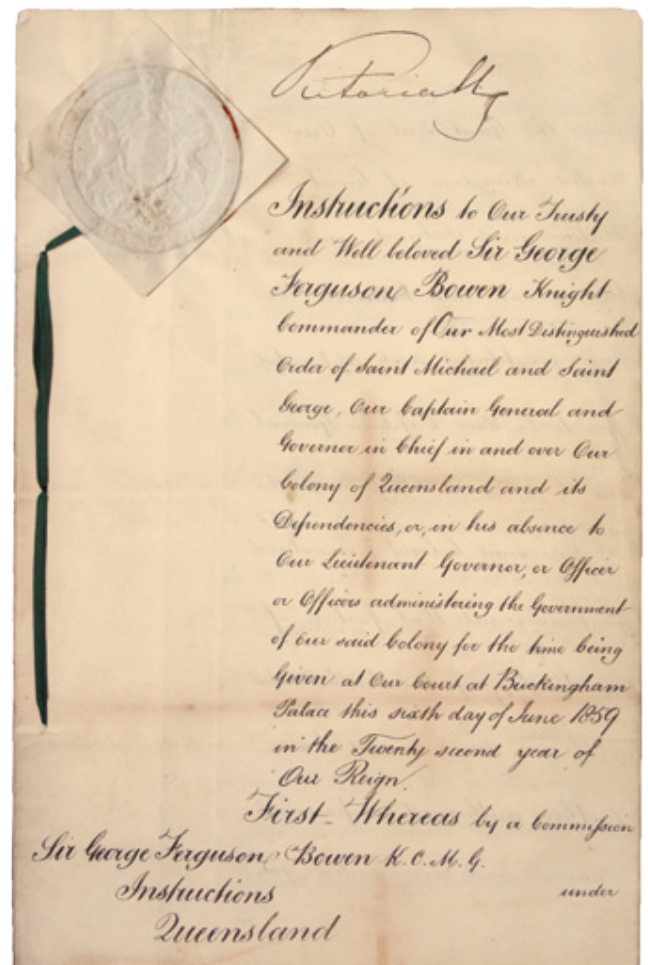 Victoria R
Instructions to Our Trusty
and Well beloved Sir George
Ferguson Bowen Knight
Commander of Our Most Distinguished
Order of Saint Michael and Saint
George, Our Captain General and
Governor in Chief in and over Our
Colony of Queensland and its
Dependencies, or, in his absence to
Our Lieutenant Governor, or Officer
or Officers administering the Government
of our said Colony for the time being
Given at Our Court at Buckingham
Palace this sixth day of June 1859
in the Twenty second year of
Our Reign.
First_ Whereas by a Commission
Sir George Ferguson Bowen K.C.M.G.
under
Instructions
Queensland